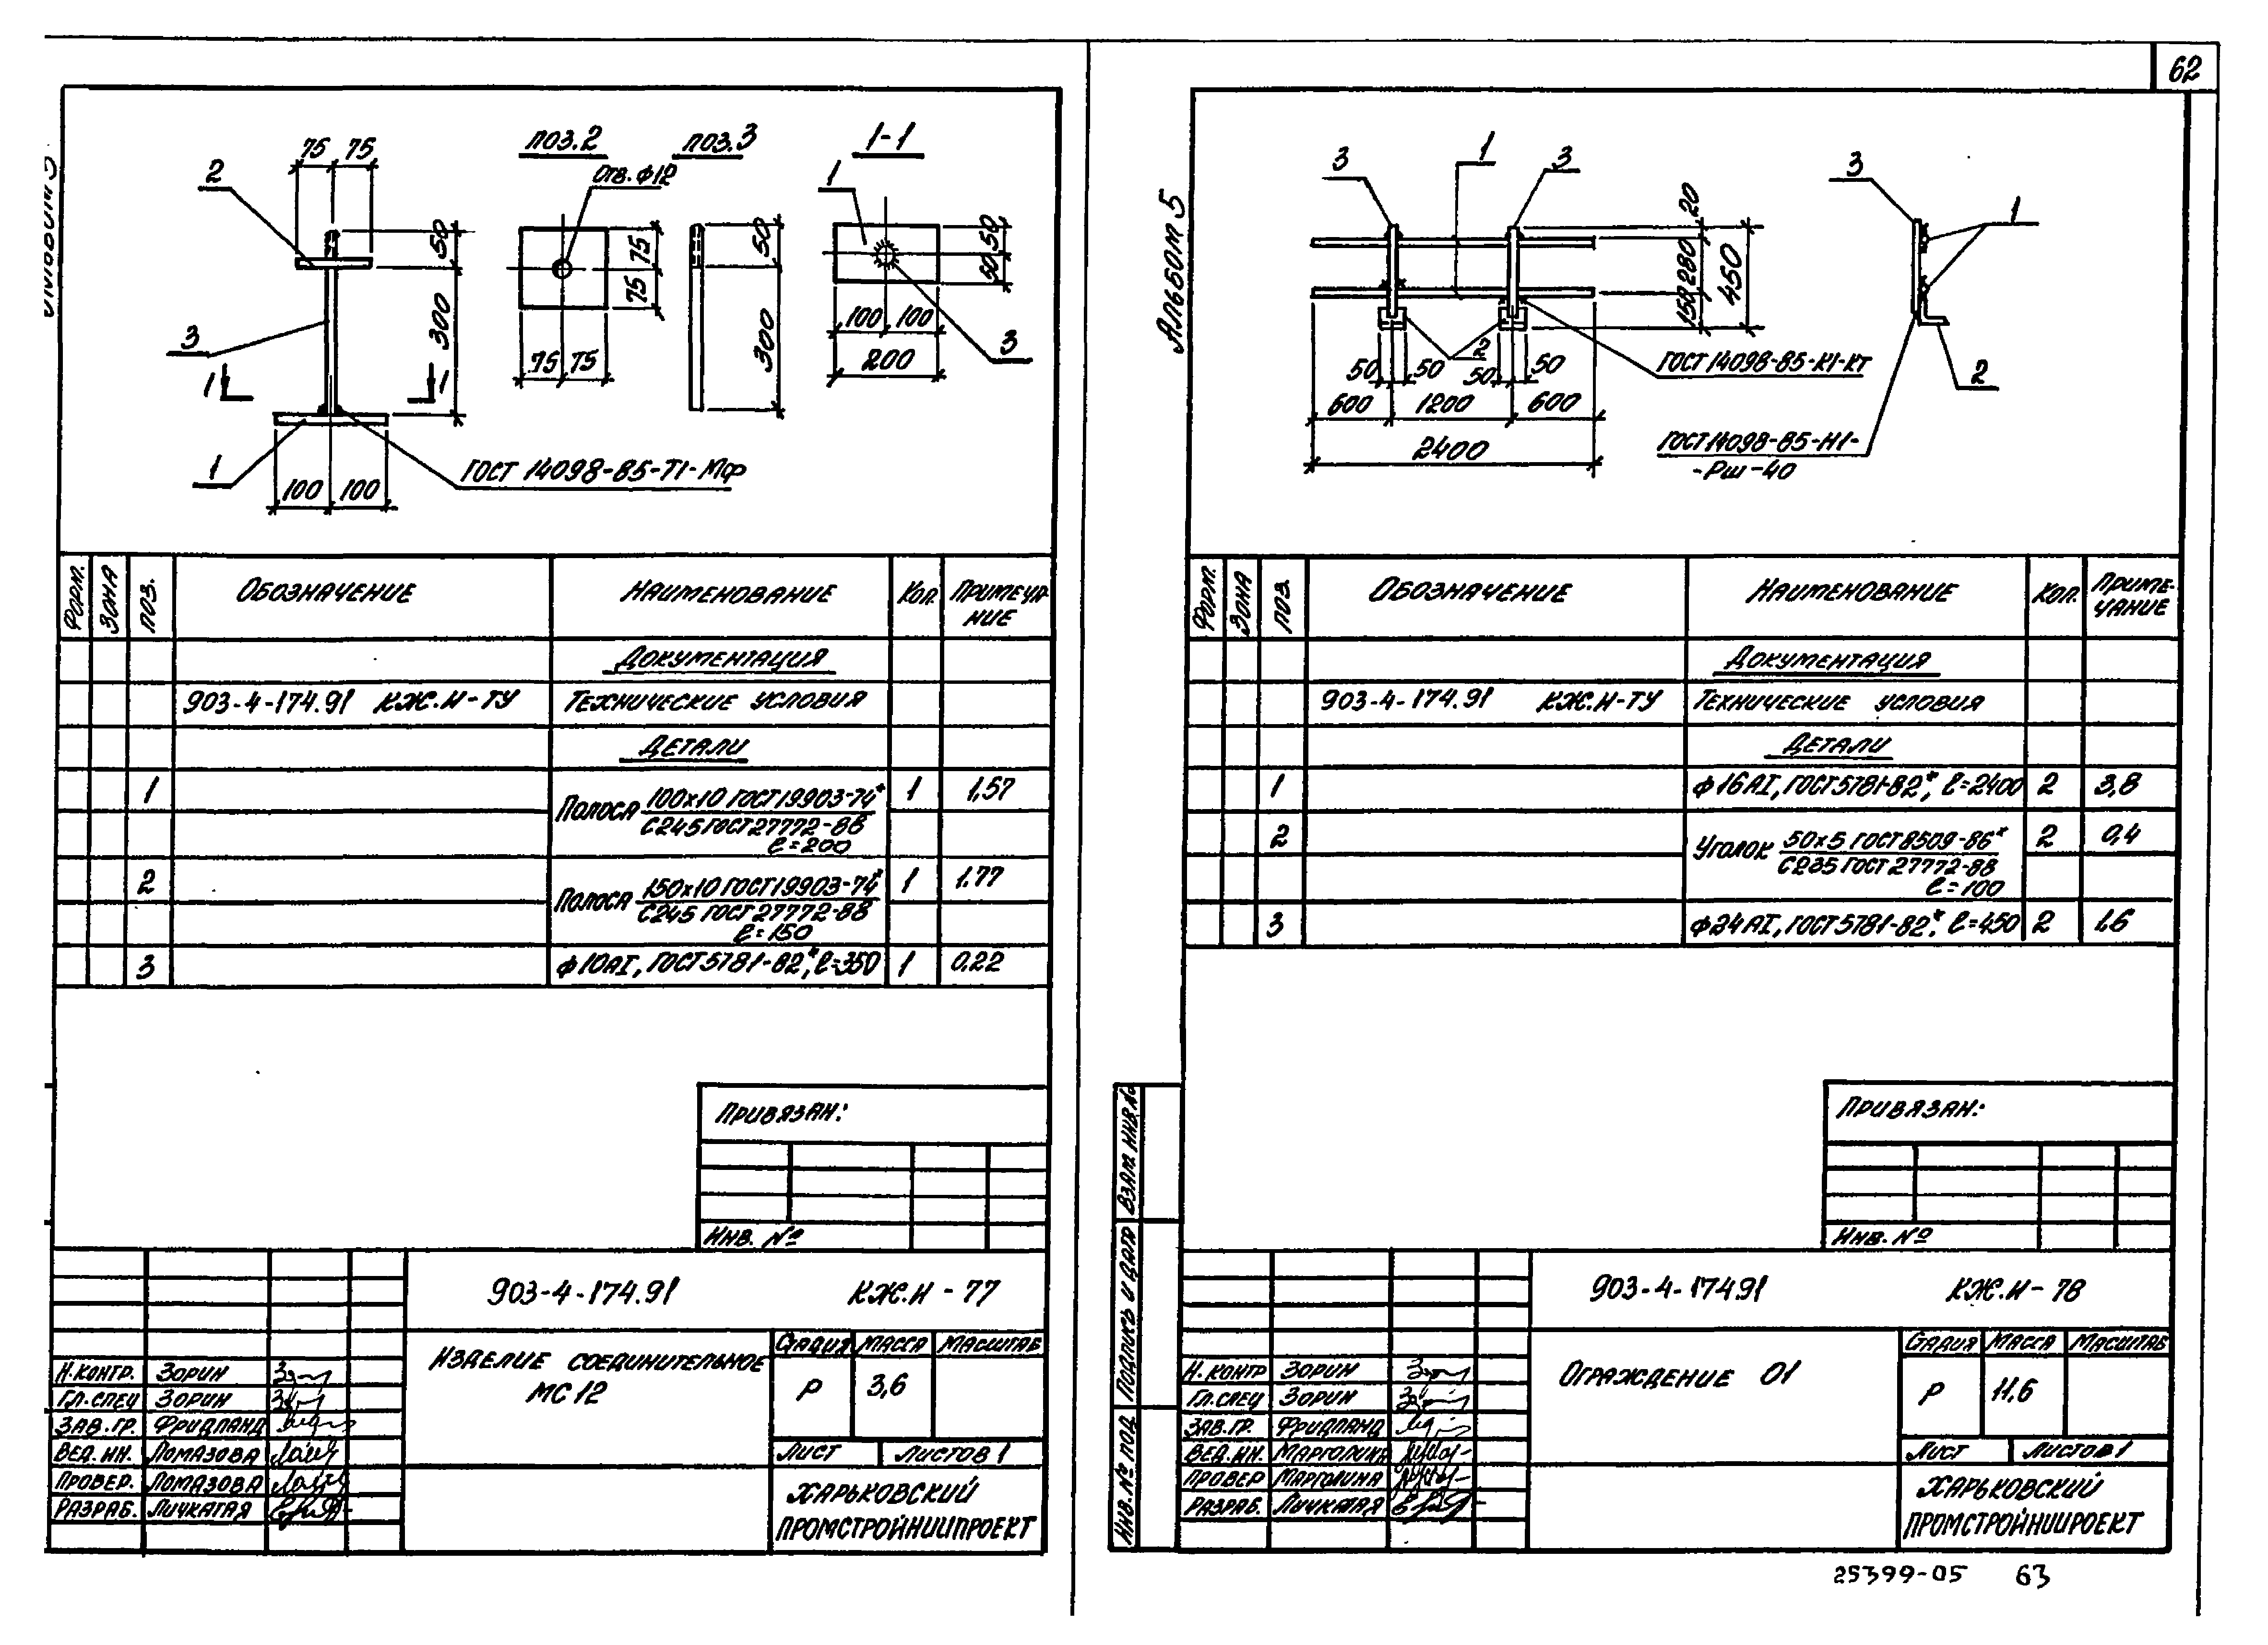 62
75 75
2
50
300
3
1 1
1
100 100
ГОСТ 14098-85-Т1-Мф
поз.2
Отв. ф12
75
75
75 75
поз.3
50
300
1-1
1
50
50
100 100
200
3
Форм. Зона Поз. Обозначение Наименование Кол. Примеча-
ние
Документация
903-4-174.91 КЖ.И-ТУ Технические условия
Детали
1 Полоса 100х10 ГОСТ 19903-74* 1 1,57
С245 ГОСТ 27772-88
ℓ=200
2 Полоса 150х10 ГОСТ 19903-74* 1 1.77
С245 ГОСТ 27772-88
ℓ=150
3 ф10АI, ГОСТ 5781-82*, ℓ=350 1 0,22
Привязан:
Инв. №
903-4-174.91 КЖ.И - 77
Изделие соединительное
МС 12
Стадия Масса Масштаб
Р 3,6
Лист Листов 1
Харьковский
Промстройниипроект
Н.контр. Зорин
Гл.спец Зорин
Зав.гр. Фридланд
Вед.ин. Ломазова
Провер. Ломазова
Разраб. Личкатая
Альбом 5
3 1 3
20
280
150
450
2
50 50 50 50
600 1200 600
2400
ГОСТ 14098-85-К1-КТ
ГОСТ 14098-85-Н1-
-Рш-40
3
1
2
Форм. Зона Поз. Обозначение Наименование Кол. Приме-
чание
Документация
903-4-174.91 КЖ.И-ТУ Технические условия
Детали
1 ф16АI, ГОСТ 5781-82*, ℓ=2400 2 3,8
2 Уголок 50х5 ГОСТ 8509-86* 2 0,4
С235 ГОСТ 27772-88
ℓ=100
3 ф24АI, ГОСТ 5781-82*, ℓ=450 2 1.6
Привязан:
Инв. №
Взам инв.№
Подпись и дата
Инв. № под
903-4-174.91 КЖ.И - 78
Ограждение О1
Стадия Масса Масштаб
Р 11,6
Лист Листов 1
Харьковский
Промстройниипроект
Н.контр Зорин
Гл.спец Зорин
Зав.гр. Фридланд
Вед.ин. Марголина
Провер Марголина
Разраб. Личкатая
25399-05 63